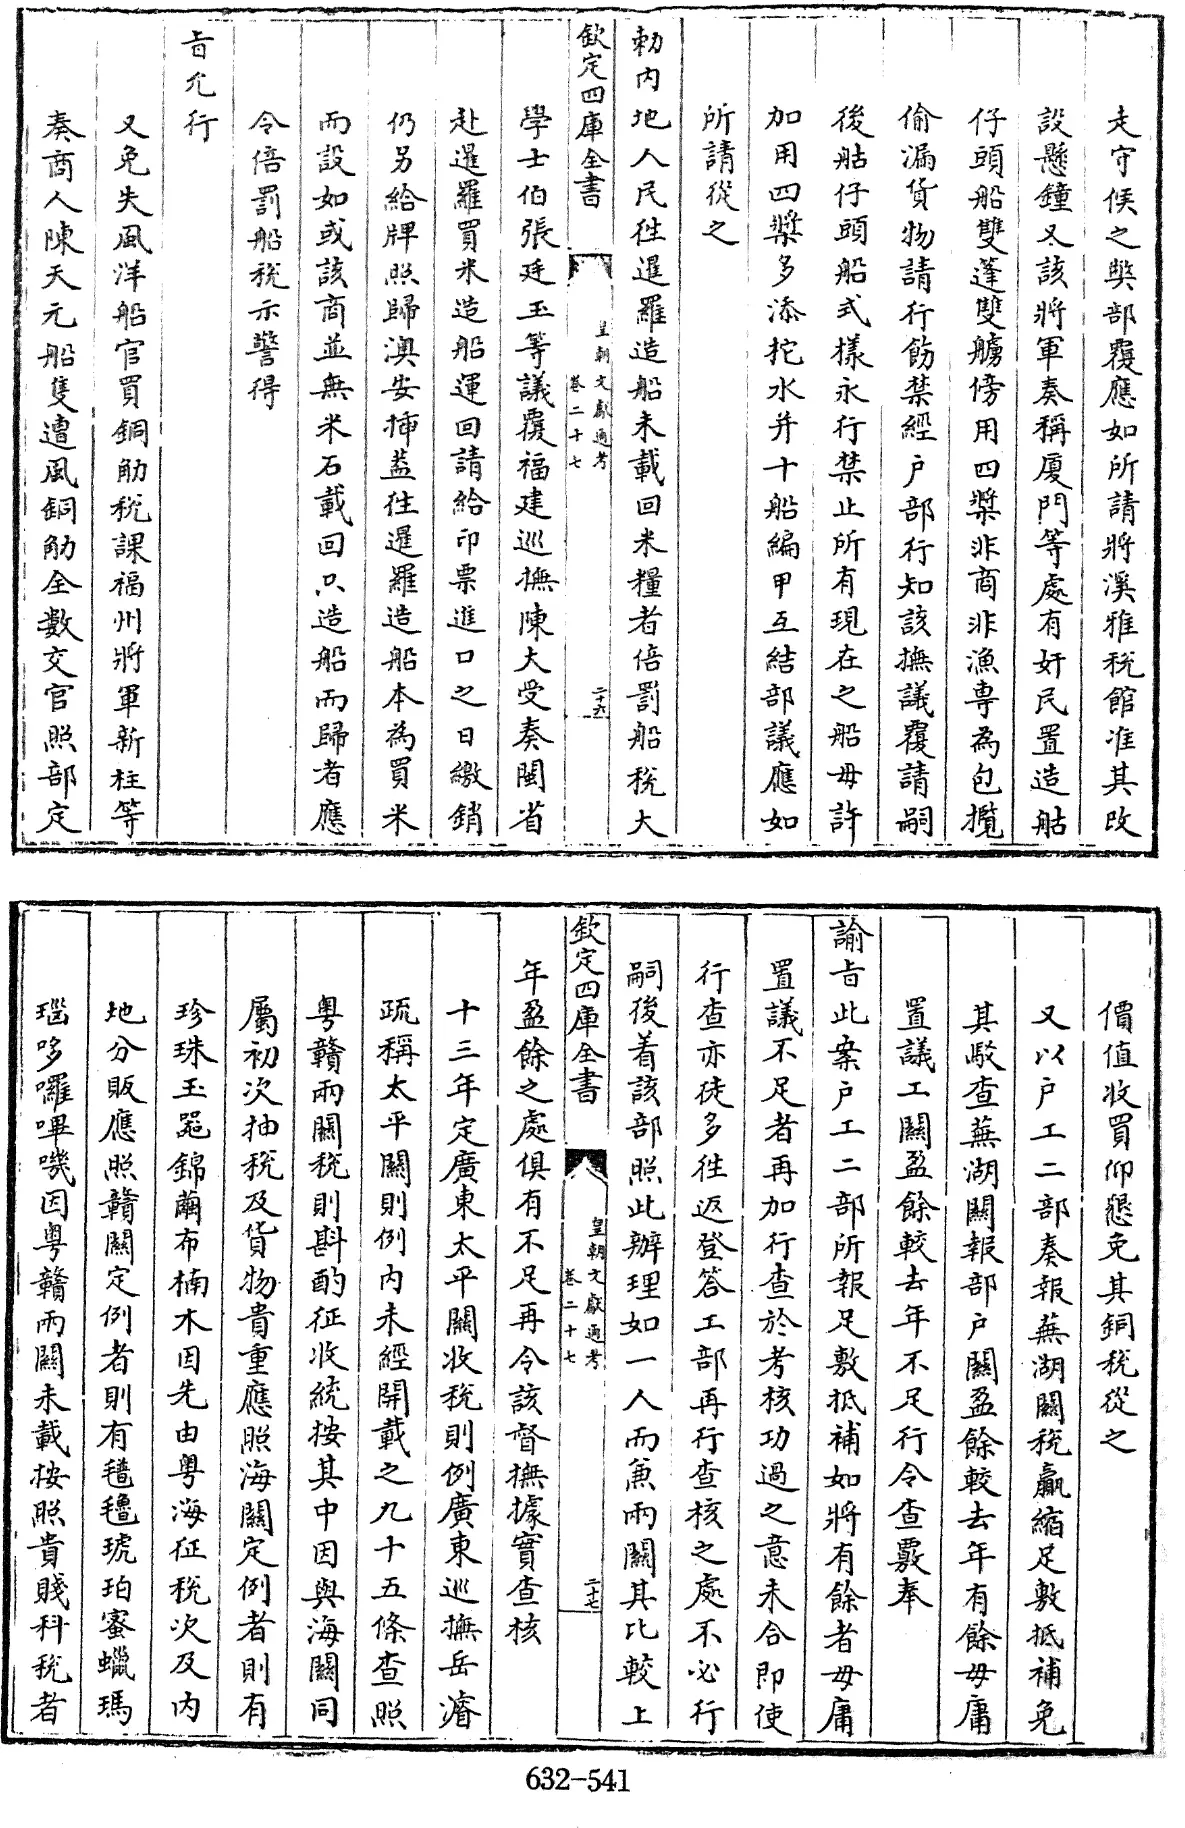 走守候之弊部覆應如所請將溪雅稅館准其改
設懸鐘又該將軍奏稱廈門等處有奸民置造舡
仔頭船雙蓬雙艣傍用四槳非商非漁専為包攬
偷漏貨物請行飭禁經户部行知該撫議覆請嗣
後舡仔頭船式様永行禁止所有現在之船毋許
加用四槳多添柁水并十船編甲互結部議應如
所請從之
勅内地人民徃暹羅造船未載回米糧者倍罰船稅大
欽定四庫全書
皇朝文獻通考
卷二十七
二十六
學士伯張廷玉等議覆福建巡撫陳大受奏閩省
赴暹羅買米造船運回請給印票進口之日繳銷
仍另給牌照歸澳安揷葢徃暹羅造船本為買米
而設如或該商並無米石載回只造船而歸者應
令倍罰船稅示警得
旨允行
又免失風洋船官買銅觔稅課福州將軍新柱等
奏商人陳天元船隻遭風銅觔全數交官照部定
價值收買仰懇免其銅稅從之
又以户工二部奏報蕪湖關稅贏縮足敷抵補免
其駁查蕪湖關報部户關盈餘較去年有餘毋庸
置議工關盈餘較去年不足行令查覈奉
諭旨此案户工二部所報足敷抵補如將有餘者毋庸
置議不足者再加行查於考核功過之意未合即使
行查亦徒多徃返登答工部再行查核之處不必行
嗣後着該部照此辦理如一人而兼兩關其比較上
欽定四庫全書
皇朝文獻通考
卷二十七
二十七
年盈餘之處俱有不足再令該督撫據實查核
十三年定廣東太平關收稅則例廣東巡撫岳濬
疏稱太平關則例内未經開載之九十五條查照
粵贛兩關稅則斟酌征收統按其中因與海關同
屬初次抽稅及貨物貴重應照海關定例者則有
珍珠玉器錦繭布楠木因先由粵海征稅次及内
地分販應照贛關定例者則有氆氇琥珀蜜蠟瑪
瑙哆囉嗶嘰因粵贛兩關未載按照貴賤科稅者
632-541